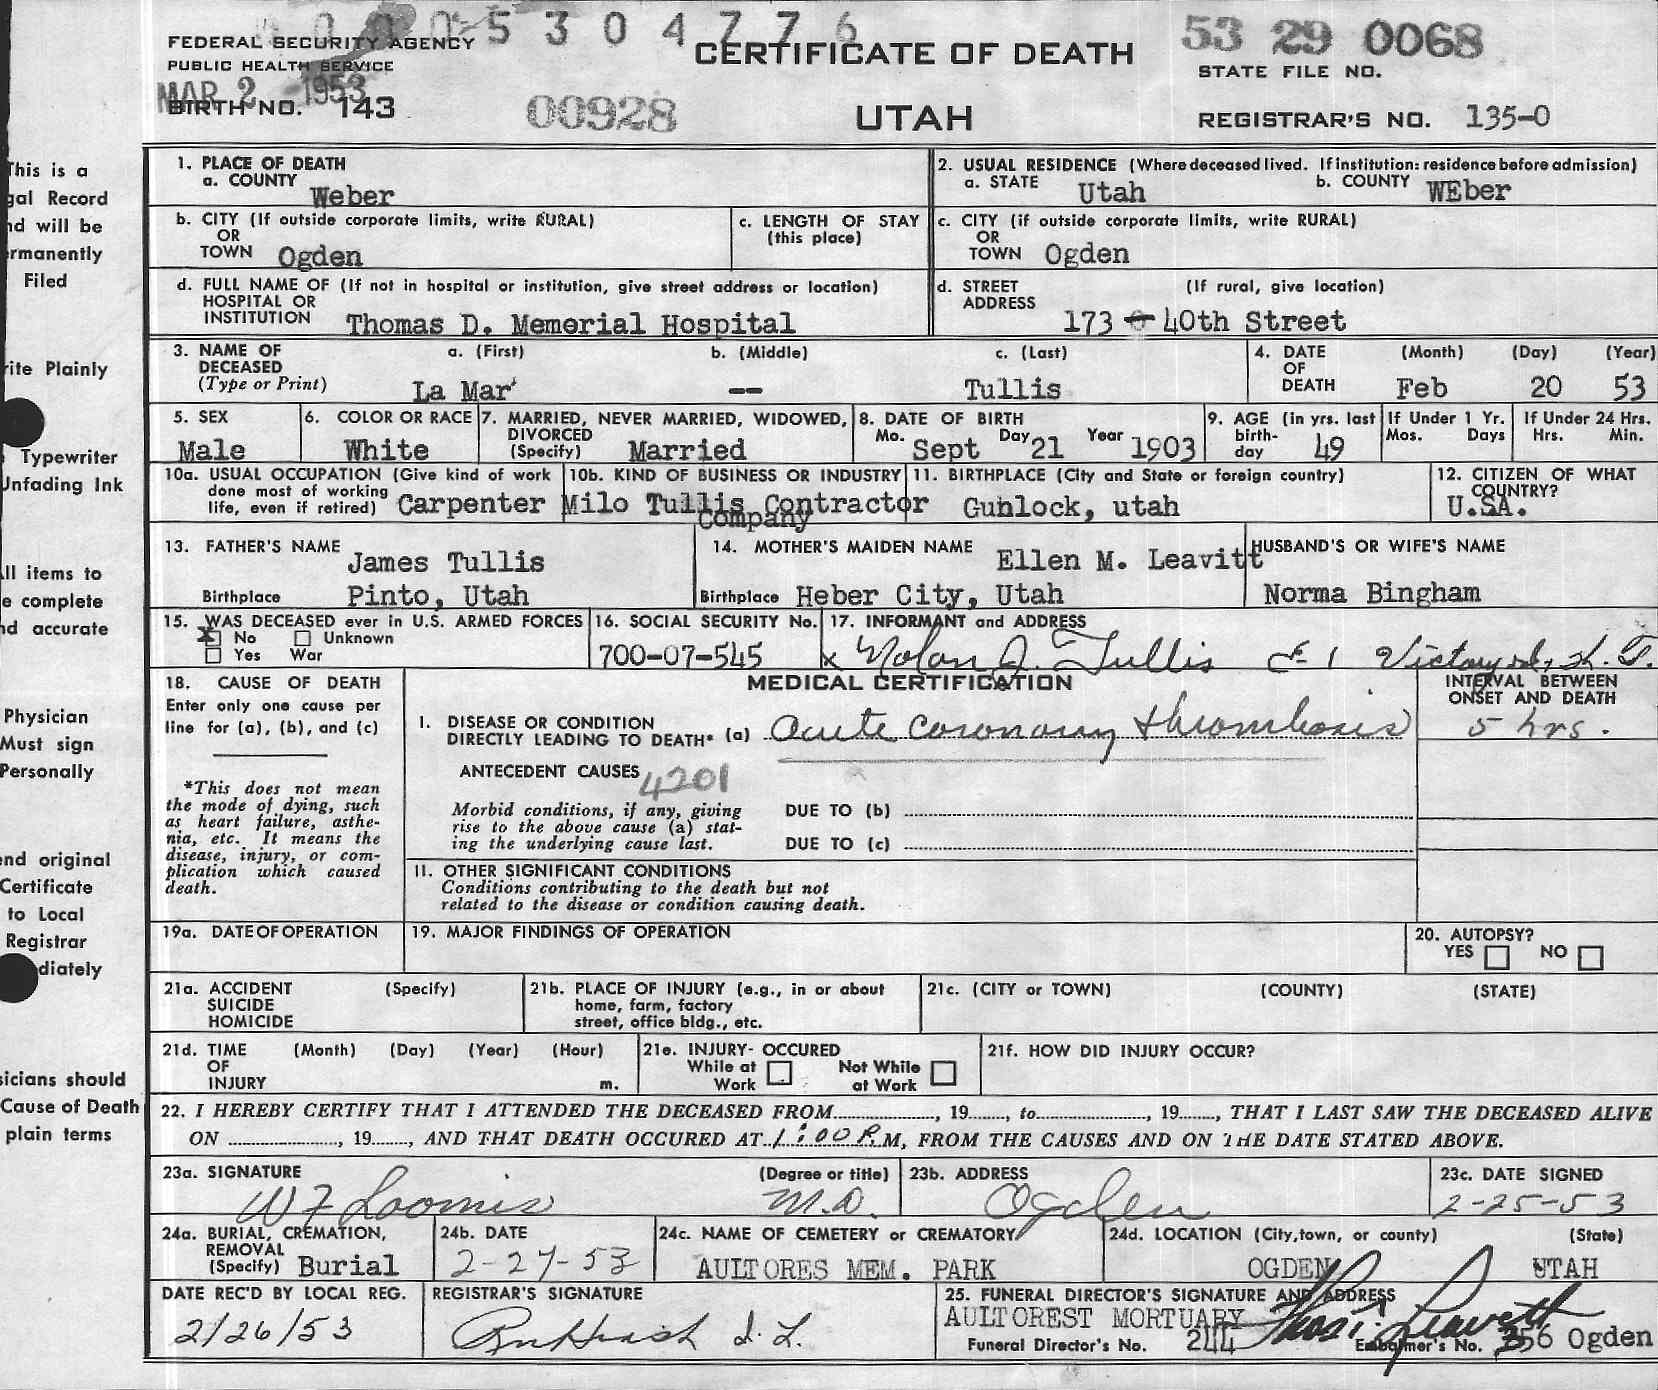 5304776
53 29 0068
FEDERAL SECURITY AGENCY
CERTIFICATE OF DEATH
PUBLIC HEALTH SERVICE
STATE FILE NO.
MAR 2 1953
BIRTH NO. 143
00928
UTAH
REGISTRAR'S NO. 135-0
This is a
gal Record
nd will be
rmanently
Filed
rite Plainly
Typewriter
Unfading Ink
All items to
e complete
nd accurate
Physician
Must sign
Personally
end original
Certificate
to Local
Registrar
diately
sicians should
Cause of Death
plain terms
1. PLACE OF DEATH
a. COUNTY Weber
2. USUAL RESIDENCE (Where deceased lived. If institution: residence before admission)
a. STATE Utah b. COUNTY WEber
b. CITY (If outside corporate limits, write RURAL)
OR
TOWN Ogden
c. LENGTH OF STAY
(this place)
c. CITY (if outside corporate limits, write RURAL)
OR
TOWN Ogden
d. FULL NAME OF (If not in hospital or institution, give street address or location)
HOSPITAL OR
INSTITUTION Thomas D. Memorial Hospital
d. STREET (If rural, give location)
ADDRESS 173 40th Street
3. NAME OF DECEASED (Type or Print)
a. (First) b. (Middle) c. (Last)
La Mar -- Tullis
4. DATE OF DEATH (Month) (Day) (Year)
Feb 20 53
5. SEX
Male
6. COLOR OR RACE
White
7. MARRIED, NEVER MARRIED, WIDOWED,
DIVORCED
(Specify) Married
8. DATE OF BIRTH
Mo. Sept Day 21 Year 1903
9. AGE (in yrs. last
birth-
day 49
If Under 1 Yr.
Mos. Days
If Under 24 Hrs.
Hrs. Min.
10a. USUAL OCCUPATION (Give kind of work
done most of working
life, even if retired) Carpenter
10b. KIND OF BUSINESS OR INDUSTRY
Milo Tullis Contractor
Company
11. BIRTHPLACE (City and State or foreign country)
Gunlock, utah
12. CITIZEN OF WHAT
COUNTRY?
U.SA.
13. FATHER'S NAME James Tullis
Birthplace Pinto, Utah
14. MOTHER'S MAIDEN NAME Ellen M. Leavitt
Birthplace Heber City, Utah
HUSBAND'S OR WIFE'S NAME
Norma Bingham
15. WAS DECEASED ever in U.S. ARMED FORCES
X No Unknown
Yes War
16. SOCIAL SECURITY No.
700-07-545
17. INFORMANT and ADDRESS
x Nolan J. Tullis Victory
18. CAUSE OF DEATH
Enter only one cause per
line for (a), (b), and (c)
*This does not mean
the mode of dying, such
as heart failure, asthe-
nia, etc. It means the
disease, injury, or com-
plication which caused
death.
MEDICAL CERTIFICATION
INTERVAL BETWEEN
ONSET AND DEATH
I. DISEASE OR CONDITION
DIRECTLY LEADING TO DEATH* (a) Acute coronary thrombosis
5 hrs.
ANTECEDENT CAUSES 4201
Morbid conditions, if any, giving
rise to the above cause (a) stat-
ing the underlying cause last.
DUE TO (b)
DUE TO (c)
II. OTHER SIGNIFICANT CONDITIONS
Conditions contributing to the death but not
related to the disease or condition causing death.
19a. DATE OF OPERATION
19. MAJOR FINDINGS OF OPERATION
20. AUTOPSY?
YES NO
21a. ACCIDENT (Specify)
SUICIDE
HOMICIDE
21b. PLACE OF INJURY (e.g., in or about
home, farm, factory
street, office bldg., etc.
21c. (CITY or TOWN) (COUNTY) (STATE)
21d. TIME (Month) (Day) (Year) (Hour)
OF
INJURY m.
21e. INJURY- OCCURED
While at Work Not While at Work
21f. HOW DID INJURY OCCUR?
22. I HEREBY CERTIFY THAT I ATTENDED THE DECEASED FROM, 19, to, 19, THAT I LAST SAW THE DECEASED ALIVE
ON, 19, AND THAT DEATH OCCURED AT 1:00 P.M, FROM THE CAUSES AND ON THE DATE STATED ABOVE.
23a. SIGNATURE (Degree or title)
W F Loomis M.D.
23b. ADDRESS
Ogden
23c. DATE SIGNED
2-25-53
24a. BURIAL, CREMATION,
REMOVAL
(Specify) Burial
24b. DATE
2-27-53
24c. NAME OF CEMETERY or CREMATORY
AULTORES MEM. PARK
24d. LOCATION (City, town, or county) (State)
OGDEN UTAH
DATE REC'D BY LOCAL REG.
2/26/53
REGISTRAR'S SIGNATURE
25. FUNERAL DIRECTOR'S SIGNATURE AND ADDRESS
AULTOREST MORTUARY Thos. Leavitt
Funeral Director's No. 244 Embalmer's No. 356 Ogden